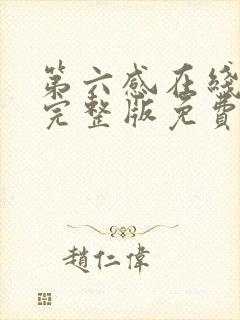 第六感在綫
完整版免費
趙仁偉